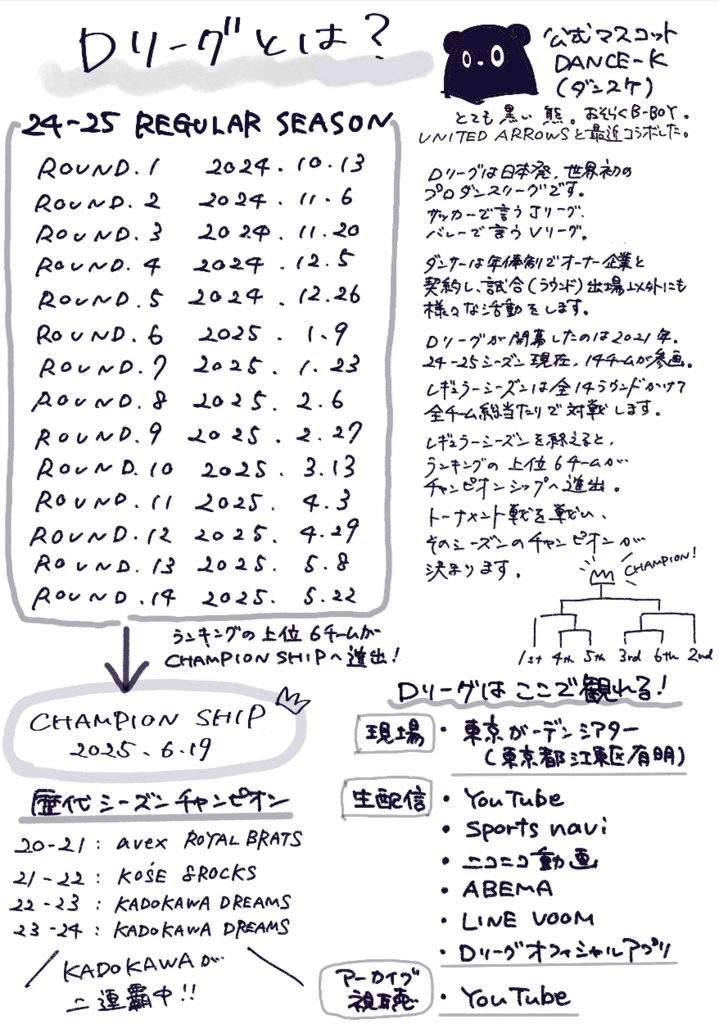 Dリーグとは?
公式マスコット
DANCE-K
(ダンスケ)
とても黒い熊。おそらくB-BOY。
UNITED ARROWSと最近コラボした。
24-25 REGULAR SEASON
ROUND.1 2024.10.13
ROUND.2 2024.11.6
ROUND.3 2024.11.20
ROUND.4 2024.12.5
ROUND.5 2024.12.26
ROUND.6 2025.1.9
ROUND.7 2025.1.23
ROUND.8 2025.2.6
ROUND.9 2025.2.27
ROUND.10 2025.3.13
ROUND.11 2025.4.3
ROUND.12 2025.4.29
ROUND.13 2025.5.8
ROUND.14 2025.5.22
ランキングの上位6チームが
CHAMPION SHIPへ進出!
CHAMPION SHIP
2025.6.19
Dリーグは日本発、世界初の
プロダンスリーグです。
サッカーで言うJリーグ、
バレーで言うVリーグ。
ダンサーは年俸制でオーナー企業と
契約し、試合(ラウンド)出場以外にも
様々な活動をします。
Dリーグが開幕したのは2021年。
24-25シーズン現在、14チームが参画。
レギュラーシーズンは全14ラウンドかけて
全チーム総当たりで対戦します。
レギュラーシーズンを終えると、
ランキングの上位6チームが
チャンピオンシップへ進出。
トーナメント戦を戦い、
そのシーズンのチャンピオンが
決まります。
CHAMPION!
1st 4th 5th 3rd 6th 2nd
歴代シーズンチャンピオン
20-21: avex ROYAL BRATS
21-22: KOSÉ 8ROCKS
22-23: KADOKAWA DREAMS
23-24: KADOKAWA DREAMS
KADOKAWAが
二連覇中!!
Dリーグはここで観れる!
現場 ・東京ガーデンシアター
(東京都江東区有明)
生配信 ・YouTube
・Sports navi
・ニコニコ動画
・ABEMA
・LINE VOOM
・Dリーグオフィシャルアプリ
アーカイブ
視聴 ・YouTube